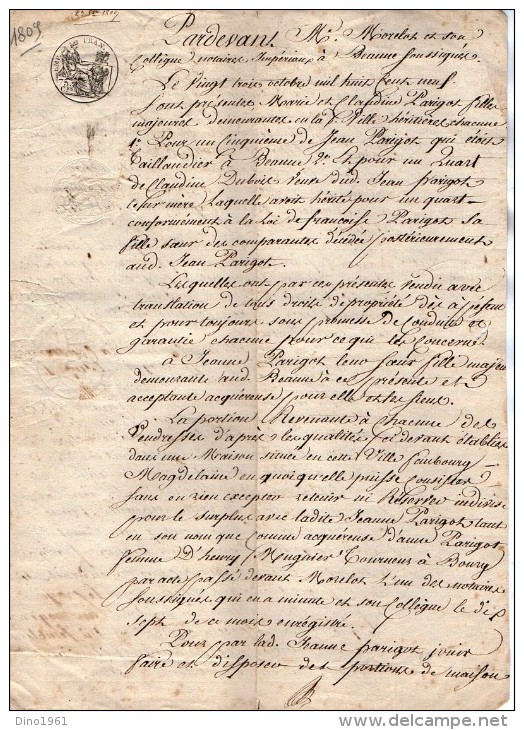 1809
Pardevant Me. Morelot et son
Collègue notaires Impériaux à Beaune soussignés.
Le vingt trois octobre mil huit cent neuf
sont présentes Marie et Claudine Parigot filles
majeures demeurantes en la Ville héritières chacune
1o. Pour un Cinquième de Jean Parigot qui étoit
taillandier à Beaune 2o. Et pour un quart
de Claudine Dubois Veuve dud. Jean Parigot
leur mère laquelle avoit hérité pour un quart
conformément à la Loi de françoise Parigot sa
fille sœur des comparantes décédée postérieurement
aud. Jean Parigot.
Lesquelles ont par ces présentes vendu avec
translation de tous droits de propriété dès à présent
et pour toujours sous promesse de conduire et
garantie chacune pour ce qui les concerne
à Jeanne Parigot leur sœur fille majeure
demeurante aud. Beaune à ce présente et
acceptante acquéreuse pour elle et les siens.
La portion Revenante à chacune des
Vendresses d'après les qualités ci devant établies
dans une Maison située en cette Ville faubourg
Magdelaine en quoi qu'elle puisse consister
sans en rien excepter retenir ni Réserver indivise
pour le surplus avec ladite Jeanne Parigot tant
en son nom que comme acquéreuse d'anne Parigot
femme d'henry Mugnier Tourneur à Bourg
par acte passé devant Morelot l'un des notaires
soussignés qui en a minute et son Collègue le dix
sept de ce mois enregistré.
Pour par lad. Jeanne Parigot jouir
faire et disposer des portions de maison
Dino1961